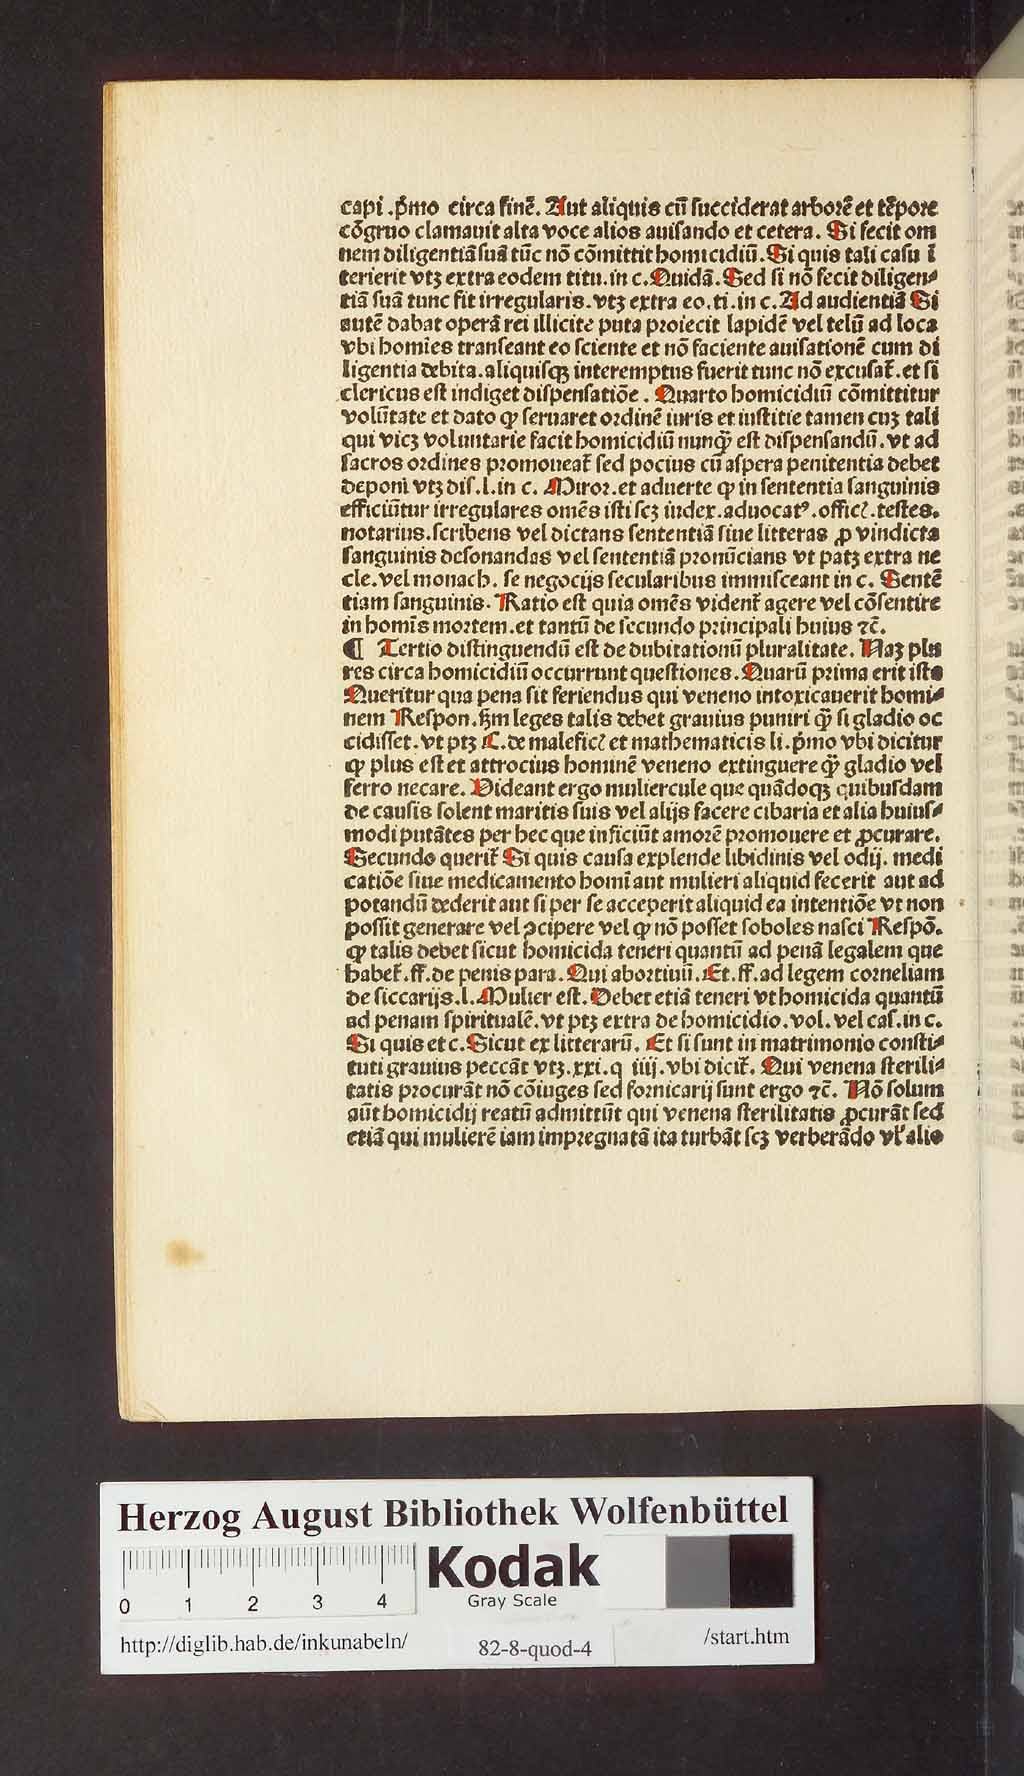 capi .p̄mo circa finē. Aut aliquis cū succiderat arborē et tēpore
cōgruo clamauit alta voce alios auisando et cetera. Si fecit om
nem diligentiā suā tūc nō cōmittit homicidiū. Si quis tali casu ī
terierit vtꝫ extra eodem titu. in c. Quidā. Sed si nō fecit diligen⸗
tiā suā tunc fit irregularis. vtꝫ extra eo. ti. in c. Ad audientiā Si
autē dabat operā rei illicite puta proiecit lapidē vel telū ad loca
vbi homīes transeant eo sciente et nō faciente auisationē cum di
ligentia debita. aliquisqꝫ interemptus fuerit tunc nō excusat̄. et si
clericus est indiget dispensatiōe . Quarto homicidiū cōmittitur
volūtate et dato ꝙ seruaret ordinē iuris et iustitie tamen cuꝫ tali
qui vicꝫ voluntarie facit homicidiū nunq̄ꝫ est dispensandū. vt ad
sacros ordines promoueat̄ sed pocius cū aspera penitentia debet
deponi vtꝫ dis. l. in c. Miror. et aduerte ꝙ in sententia sanguinis
efficiūtur irregulares omēs isti scꝫ iudex. aduocatꝰ. officꝭ. testes.
notarius. scribens vel dictans sententiā siue litteras ꝓ vindicta
sanguinis desonandas vel sententiā pronūcians vt patꝫ extra ne
cle. vel monach. se negocijs secularibus immisceant in c. Sentē
tiam sanguinis. Ratio est quia omēs vident̄ agere vel cōsentire
in homīs mortem. et tantū de secundo principali huius ⁊c̄.
¶ Tertio distinguendū est de dubitationū pluralitate. Naꝫ plu
res circa homicidiū occurrunt questiones. Quarū prima erit ista
Queritur qua pena sit feriendus qui veneno intoxicauerit homi⸗
nem Respon. ẜm leges talis debet grauius puniri q̄ꝫ si gladio oc
cidisset. vt ptꝫ C. de maleficꝭ et mathematicis li. p̄mo vbi dicitur
ꝙ plus est et attrocius hominē veneno extinguere q̄ꝫ gladio vel
ferro necare. Videant ergo muliercule que quādoqꝫ quibusdam
de causis solent maritis suis vel alijs facere cibaria et alia huius⸗
modi putātes per hec que inficiūt amorē promouere et ꝓcurare.
Secundo querit̄ Si quis causa explende libidinis vel odij. medi
catiōe siue medicamento homī aut mulieri aliquid fecerit aut ad
potandū dederit aut si per se acceperit aliquid ea intentiōe vt non
possit generare vel ↄcipere vel ꝙ nō posset soboles nasci Respō.
ꝙ talis debet sicut homicida teneri quantū ad penā legalem que
habet̄. ff. de penis para. Qui abortiuū. Et. ff. ad legem corneliam
de siccarijs. l. Mulier est. Debet etiā teneri vt homicida quantū
ad penam spiritualē. vt ptꝫ extra de homicidio. vol. vel cas. in c.
Si quis et c. Sicut ex litterarū. Et si sunt in matrimonio consti⸗
tuti grauius peccāt vtꝫ. xxi. q iiij. vbi dicit̄. Qui venena sterili⸗
tatis procurāt nō cōiuges sed fornicarij sunt ergo ⁊c̄. Nō solum
aūt homicidij reatū admittūt qui venena sterilitatis ꝓcurāt sed
etiā qui mulierē iam impregnatā ita turbāt scꝫ verberādo vl̓ alio
Herzog August Bibliothek Wolfenbüttel
0 1 2 3 4
Kodak
Gray Scale
http://diglib.hab.de/inkunabeln/ 82-8-quod-4 /start.htm